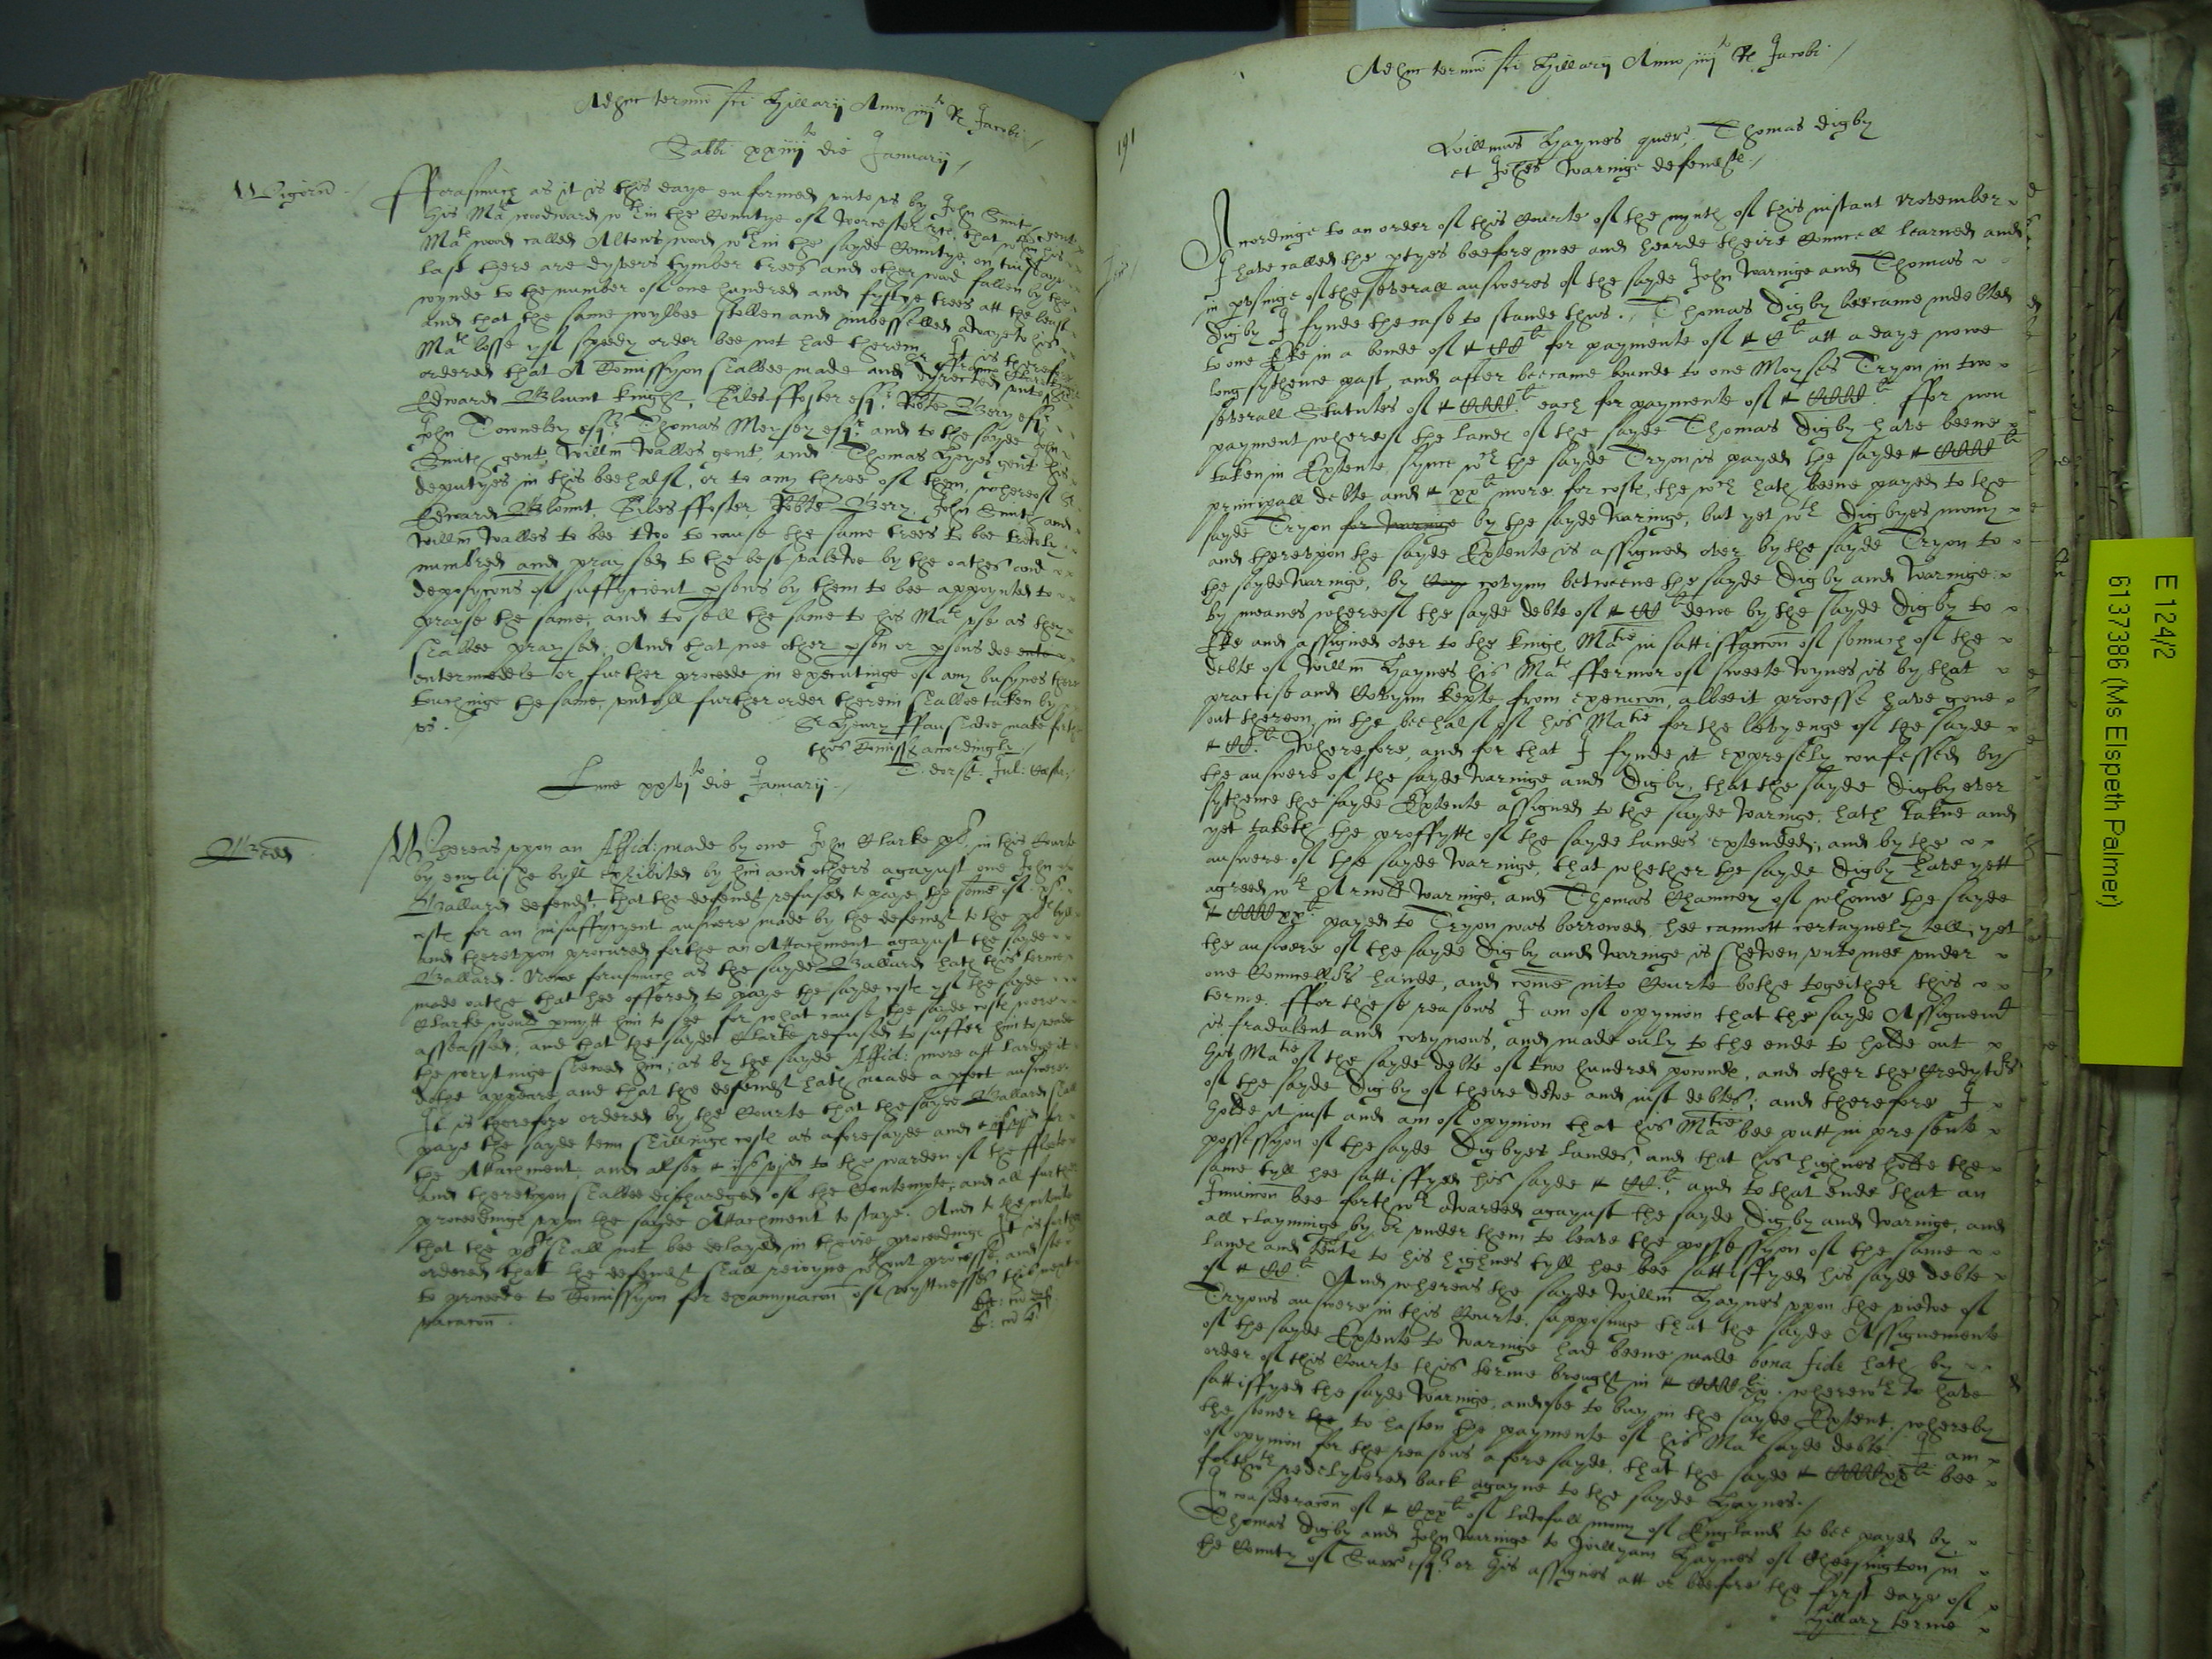 Adhuc termino sci Hillarij Anno iiij to R Jacobi
Sabbi xxiiij to die Januarij
Wigorn
Fforasmuch as it is this daye enformed unto us by John Smith gent
his Mats woodward wthin the Countye of Worcester etc, that in his
Mats wood called Altons wood wthin the sayde Countye, on
last there are dyvers tymber trees and other wood fallen by the
wynde to the number of one hundred and fyftye trees att the least
and that the same wylbee stollen and imbessilled awaye to his
Mats losse yf speedy order bee not had therein It is therefore
ordered that A Comissyon shalbee made and dyrected unto Sr
Edward Blount knight, Giles Ffoster esqr, Robte Bery esqr
John Towneley esqr, Thomas Meysey esqr and to the sayde John
Smith gent Willm Walles gent, and Thomas Heyes gent his
deputyes in this beehalf, or to any three of them, whereof Sr
Edward Blount, Giles Ffoster, Robte Bery, John Smith and
Willm Walles to bee two to cause the same trees to bee trewly
numbred and praysed to the best valewe by the oathes and
deposycons of suffycient psons by them to bee appoynted to
prayse the same, and to sell the same to his Mats use as they
shalbee praysed, And that noe other pson or psons doe
entermedele or further proceede in executinge of any busynes there
touchinge the same, untyll further order therein shalbee taken by
us.
Sr Henry Ffanshawe make forth
this Comiss accordingly
T. dorset. Jul: Cesar
Lune xxvj to die Januarij
Whereas upon an Affid: made by one John Clarke plt, in this Courte
by englishe byll exhibited by him and others agaynst one John
Ballard defendt, that the defendt refused to paye the some of xs
costs for an insuffycyent answere made by the defendt to the plts byll
and thereupon procured forthe an Attachment agaynst the sayde
Ballard. Nowe forasmuch as the sayde Ballard hath this terme
made oathe that hee offered to paye the sayde costs yf the sayde
Clarke would pmytt him to see for what cause the sayde costs were
asseassed, and that the sayde Clarke refused to suffer him to reade
the wrytinge shewed him, as by the sayde Affid: more att lardge it
dothe appeare, and that the defendt hath made a pfect answere.
It is therefore ordered by the Courte that the sayde Ballard shall
paye the sayde tenn shillings costs as aforesayde and for
the Attachment, and alsoe to the warden of the Ffleete
and thereupon shalbee dischardged of the Contempte, and all further
proceedings upon the sayde Attachment to staye. And to thentente
that the plts shall not bee delayed in theire proceedings It is further
ordered that the defendt shall reioyne wthout processe, and
to proceede to Comissyon for examynacon of wyttnesses this next
vacacon.
191
Adhuc termino sci Hillarij Anno iiij to R Jacobi
Willmus Haynes quer, Thomas Digby
et Johes Waringe defendtes
Accordinge to an order of this Courte of the nynth of this instant November
I have called the ptyes beefore mee and hearde theire Councell learned and
in pvsinge of the severall answeres of the sayde John Waringe and Thomas
Digby I fynde the case to stande thus. Thomas Digby beecame indebted
to one in a bonde of CCli for paymente of Cli att a daye nowe
long sythence past, and after beecame bounde to one Moyses Tryon in two
severall Statutes of CCCCli each for paymente of CCCCli Ffor non
payment whereof the lands of the sayde Thomas Digby have beene
taken in Extente, synce wch the sayde Tryon is payed the sayde CCCCli
principall debte and xxli more for costs, the wch hath beene payed to the
sayde Tryon for Waringe by the sayde Waringe, but yet wth Digbyes mony
and thereupon the sayde Extente is assigned over by the sayde Tryon to
the sayde Waringe, by covynn betweene the sayde Digby and Waringe:
by meanes whereof the sayde debte of CCli dewe by the sayde Digby to
and assigned over to the kings Matie in sattisfaccon of somuch of the
debte of Willm Haynes his Mats ffermor of sweete wynes is by that
practise and Covynn kepte from execucon, albeeit processe have gone
out thereon, in the beehalf of his Matie for the levyenge of the sayde
CCli. Wherefore, and for that I fynde it expresely confessed by
the answere of the sayde Waringe and Digby, that the sayde Digby ever
sythence the sayde Extente assigned to the sayde Waringe, hath taken and
yet taketh the proffytts of the sayde landes extended, and by the
answere of the sayde Waringe, that whether the sayde Digby have yett
agreed wth Arnold Waringe, and Thomas Chamney of whome the sayde
CCCCxxli payed to Tryon was borrowed, hee cannott certaynely tell, yet
the answere of the sayde Digby and Waringe is shewen unto mee under
one Councellors hande, and come into Courte bothe togeither this
terme. Ffor these reasons I am of opynion that the sayde Assignemt
is fradulent and covynous, and made only to the ende to holde out
his Matie of the sayde debte of two hundred pownds, and other the Credytors
of the sayde Digby of theire dewe and iust debtes; and therefore I
holde it iust and am of opynion that his Matie bee putt in presente
possessyon of the sayde Digbyes landes, and that his highnes holde the
same tyll hee sattisfyed his sayde CCli, and to that ende that an
Iniuncon bee forthwth awarded agaynst the sayde Digby and Waringe, and
all clayminge by or under them to leave the possessyon of the same
lands and tents to his highnes tyll hee bee sattisfyed his sayde debte
of CCli. And whereas the sayde Willm Haynes uppon the viewe of
Tryons answere in this Courte, supposinge that the sayde Assignemente
of the sayde Extente to Waringe had beene made bona fide hath by
order of this Courte this terme brought in CCCCxxli. wherewth to have
sattisfyed the sayde Waringe, and soe to buy in the sayde Extent, whereby
the sooner the to hasten the paymente of his Mats sayde debte I am
of opynion for the reasons aforesayde, that the sayde CCCCxxli bee
forthwth redelyvered back agayne to the sayde Haynes.
In consideracon of Cxxli of lawfull mony of England to bee payed by
Thomas Digby and John Waringe to Willyam Haynes of Chessington in
the County of Surr esqr or his assignes att or beefore the fyrst daye of
Hillary terme
E 124/2
6137386 (Ms Elspeth Palmer)